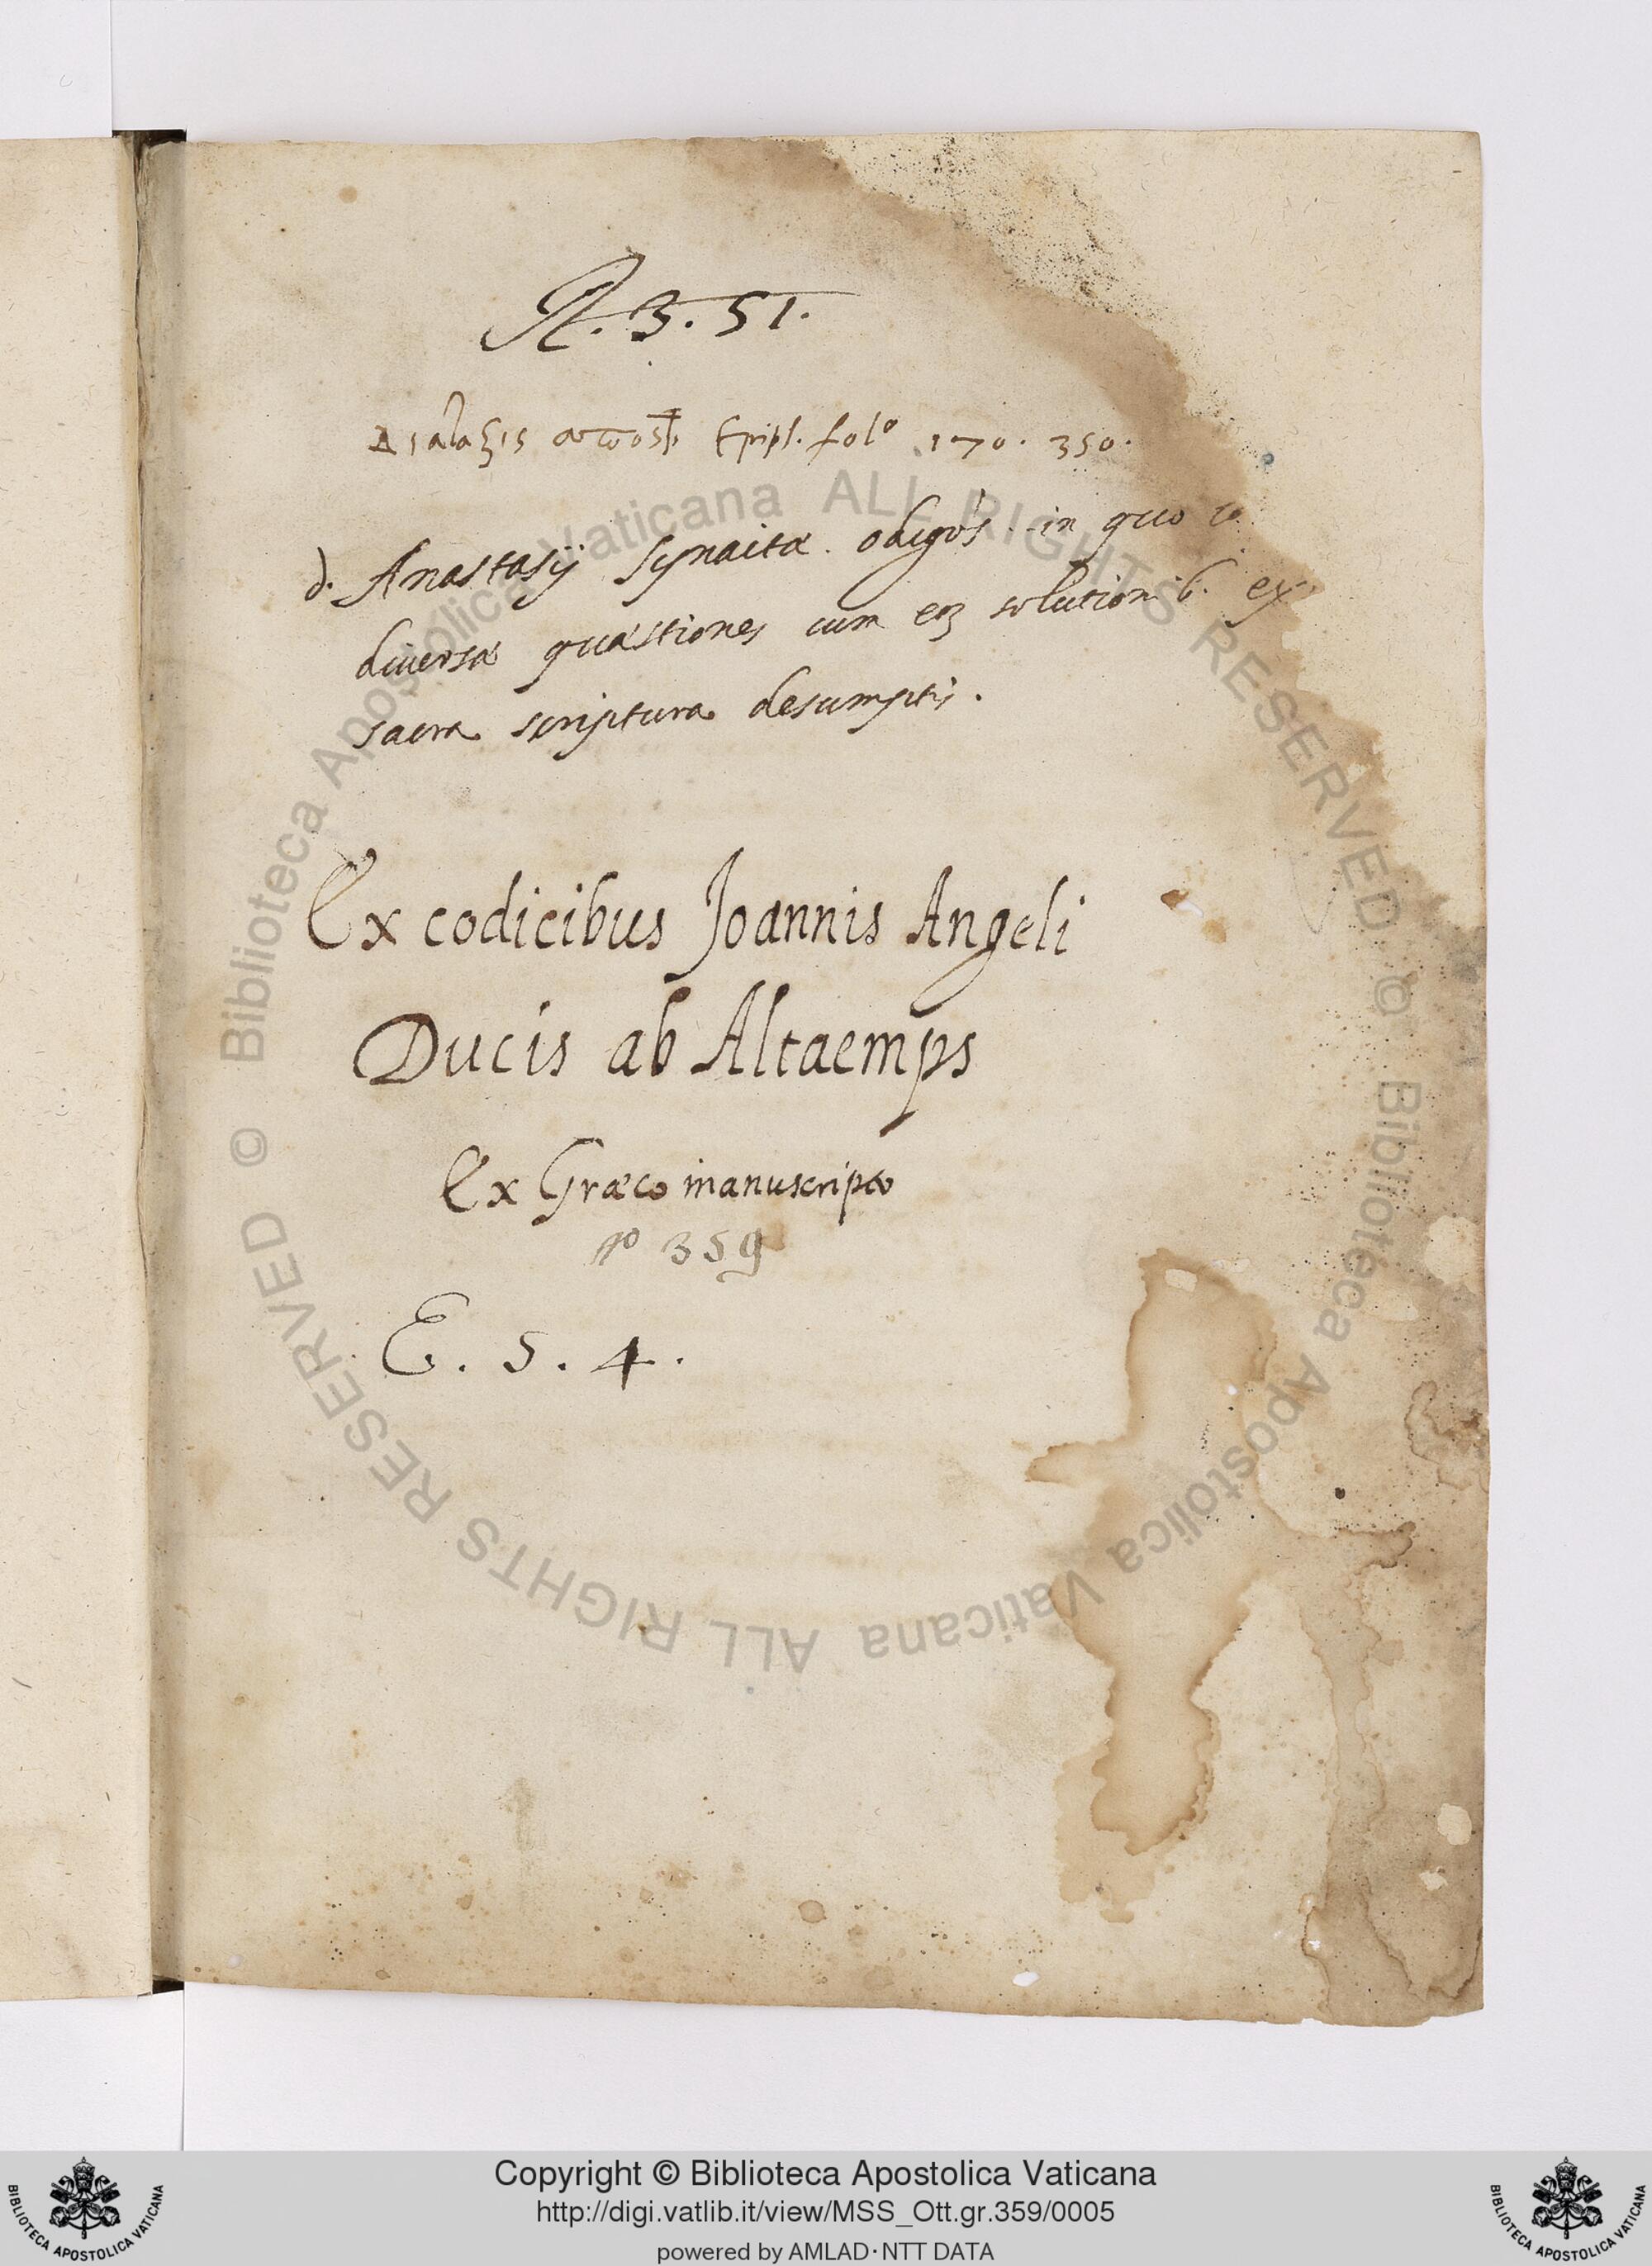 R. 3. 51.
Διαταξις αποστ. Epiph. fol.º 170. 350.
d. Anastasij Synaitæ. odigos. in quo
diuersæ quæstiones cum eoꝝ solutionib. ex
sacra scriptura desumptis.
Ex codicibus Joannis Angeli
Ducis ab Altaemps
Ex Græco manuscripto
nº 359
E. 5. 4.
© Biblioteca Apostolica Vaticana ALL RIGHTS RESERVED © Biblioteca Apostolica Vaticana ALL RIGHTS RESERVED
Copyright © Biblioteca Apostolica Vaticana
http://digi.vatlib.it/view/MSS_Ott.gr.359/0005
powered by AMLAD·NTT DATA
BIBLIOTECA APOSTOLICA VATICANA
BIBLIOTECA APOSTOLICA VATICANA